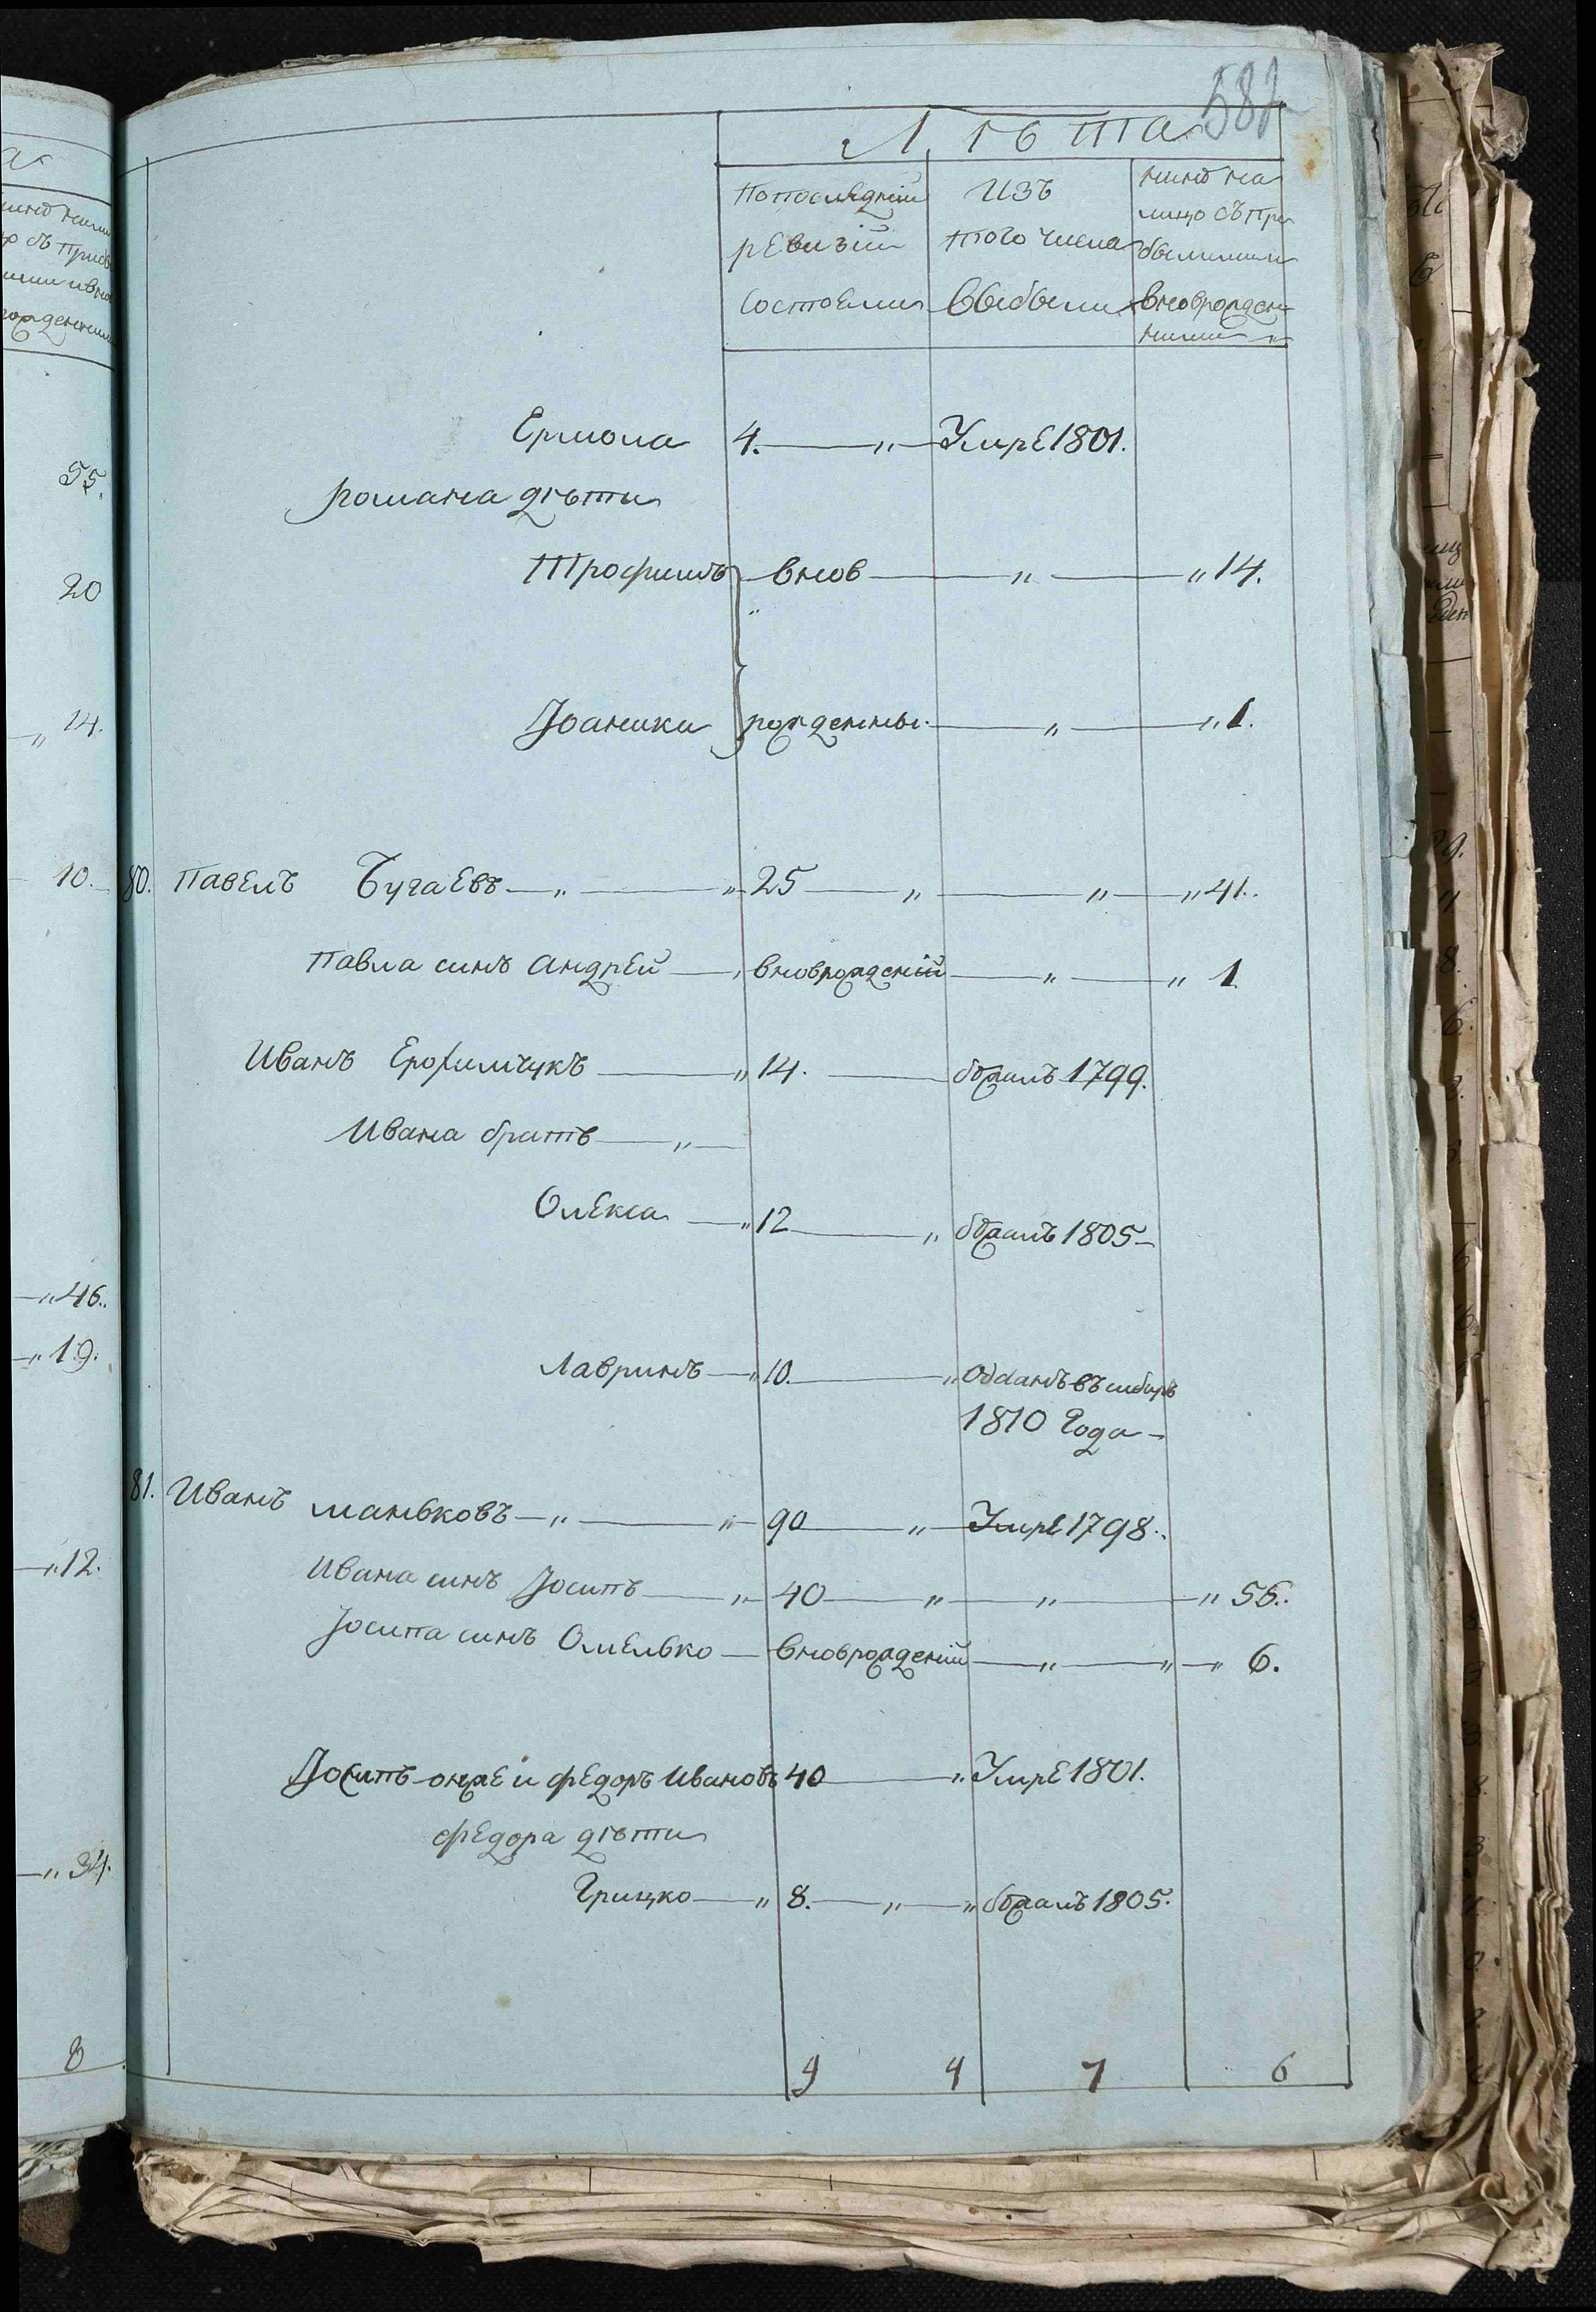 582
Лѣта
Попоследнiй ревизiи состояли
Изъ того числа выбыли
нинѣ на лицо съ при былими вноврожден ними
Ермола 4. Умре 1801.
романа дѣти
Трофимъ внов 14.
Јоаники рожденны. 1.
80. Павелъ Бугаевъ 25 41.
Павла синъ андрей вноврожденiй 1
Иванъ Ерофимчукъ 14. бѣжалъ 1799.
Ивана братъ
Олекса 12 бѣжалъ 1805
Лавринъ 10. Odданъ въ сибирь
1810 Года
81. Иванъ маньковъ 90 Умре 1798.
Ивана синъ Јосипъ 40 56.
Јосипа синъ Омелько вноврожденiй 6.
Јосипъ онже и федоръ Ивановъ 40 Умре 1801.
федора дѣти
Грицко 8. бѣжалъ 1805.
9 4 7 6
55.
20
14.
10.
46.
19.
12.
34.
8